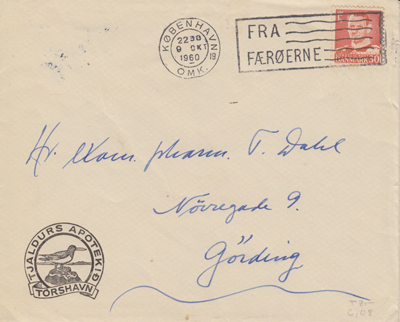 KØBENHAVN
22 30
9 OKT
1960
OMK.
FRA
FÆRØERNE
DANMARK 30
Hr. exam. pharm. T. Dahl
Nörregade 9.
Görding
TJALDURS APOTEKIÐ
TÓRSHAVN